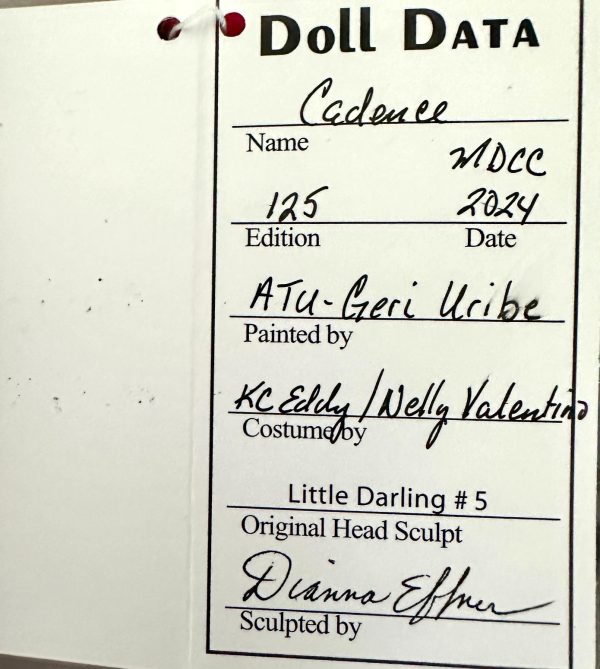 Doll Data
Cadence
Name
MDCC
125 2024
Edition Date
ATU-Geri Uribe
Painted by
KC Eddy/Nelly Valentino
Costume by
Little Darling # 5
Original Head Sculpt
Dianna Effner
Sculpted by